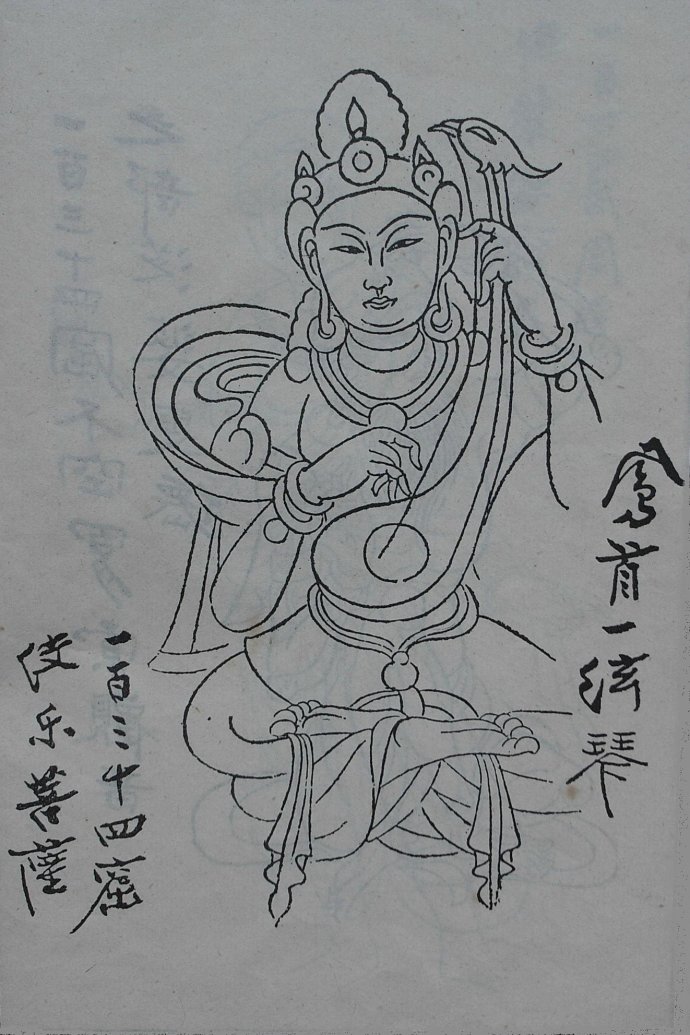 鳳首一弦琴
一百三十四窟
伎乐菩薩